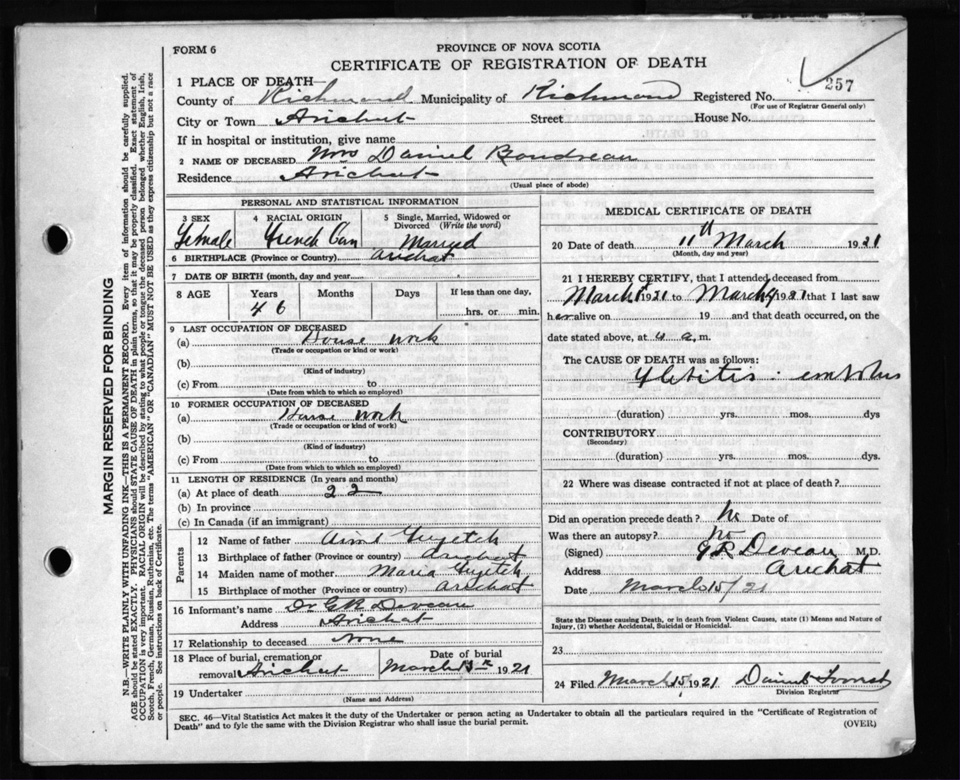 FORM 6
PROVINCE OF NOVA SCOTIA
CERTIFICATE OF REGISTRATION OF DEATH
257
1 PLACE OF DEATH—
County of Richmond Municipality of Richmond Registered No.
(For use of Registrar General only)
City or Town Arichat Street House No.
If in hospital or institution, give name
2 NAME OF DECEASED Mrs Daniel Boudreau
Residence Arichat
(Usual place of abode)
PERSONAL AND STATISTICAL INFORMATION
3 SEX 4 RACIAL ORIGIN 5 Single, Married, Widowed or Divorced (Write the word)
Female French Can Married
6 BIRTHPLACE (Province or Country) Arichat
7 DATE OF BIRTH (month, day and year)
8 AGE Years Months Days If less than one day,
46 hrs. or min.
9 LAST OCCUPATION OF DECEASED
(a) House work
(Trade or occupation or kind of work)
(b)
(Kind of industry)
(c) From to
(Date from which to which so employed)
10 FORMER OCCUPATION OF DECEASED
(a) House work
(Trade or occupation or kind of work)
(b)
(Kind of industry)
(c) From to
(Date from which to which so employed)
11 LENGTH OF RESIDENCE (In years and months)
(a) At place of death 22
(b) In province
(c) In Canada (if an immigrant)
Parents
12 Name of father
13 Birthplace of father (Province or country) Arichat
14 Maiden name of mother Maria
15 Birthplace of mother (Province or country) Arichat
16 Informant's name Dr G R Deveau
Address Arichat
17 Relationship to deceased none
18 Place of burial, cremation or removal Arichat
Date of burial March 13th 1921
19 Undertaker
(Name and Address)
MEDICAL CERTIFICATE OF DEATH
20 Date of death 11th March 1921
(Month, day and year)
21 I HEREBY CERTIFY, that I attended deceased from
March 1921 to March 1921 that I last saw
her alive on 19 and that death occurred, on the
date stated above, at 4 a.m.
The CAUSE OF DEATH was as follows:
Flebitis : embolus
(duration) yrs. mos. dys
CONTRIBUTORY
(Secondary)
(duration) yrs. mos. dys.
22 Where was disease contracted if not at place of death?
Did an operation precede death? No Date of
Was there an autopsy? No
(Signed) G R Deveau M.D.
Address Arichat
Date March 15/21
State the Disease causing Death, or in death from Violent Causes, state (1) Means and Nature of
Injury, (2) whether Accidental, Suicidal or Homicidal.
23
24 Filed March 15, 1921
Division Registrar
SEC. 46—Vital Statistics Act makes it the duty of the Undertaker or person acting as Undertaker to obtain all the particulars required in the "Certificate of Registration of
Death" and to fyle the same with the Division Registrar who shall issue the burial permit.
(OVER)
MARGIN RESERVED FOR BINDING
N.B.—WRITE PLAINLY WITH UNFADING INK—THIS IS A PERMANENT RECORD. Every item of information should be carefully supplied.
AGE should be stated EXACTLY. PHYSICIANS should STATE CAUSE OF DEATH in plain terms, so that it may be properly classified. Exact statement of
OCCUPATION is very important. RACIAL ORIGIN will be described by stating to what people or tongue the deceased person belonged whether English, Irish,
Scotch, French, German, Russian, Ruthenian, etc. The terms "AMERICAN" or "CANADIAN" MUST NOT BE USED as they express citizenship but not a race
or people. See instructions on back of Certificate.